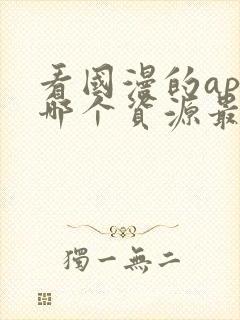 看國漫的ap
哪个資源最
獨一無二